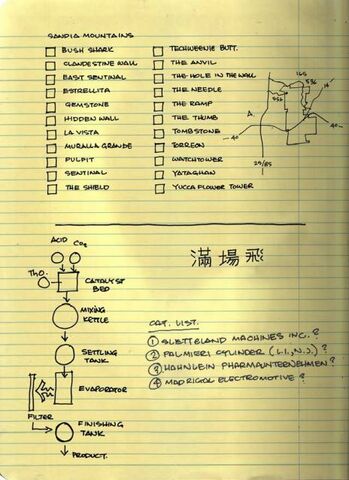 SANDIA MOUNTAINS
BUSH SHARK
CLANDESTINE WALL
EAST SENTINAL
ESTRELLITA
GEMSTONE
HIDDEN WALL
LA VISTA
MURALLA GRANDE
PULPIT
SENTINAL
THE SHIELD
TECHWEENIE BUTT.
THE ANVIL
THE HOLE IN THE WALL
THE NEEDLE
THE RAMP
THE THUMB
TOMBSTONE
TORREON
WATCHTOWER
YATAGHAN
YUCCA FLOWER TOWER
165
536
14
556
40
40
25/85
滿場飛
ACID
CO2
ThO.
CATALYST
BED
MIXING
KETTLE
SETTLING
TANK
EVAPORATOR
FILTER
FINISHING
TANK
PRODUCT.
CAT. LIST.
① SLETTELAND MACHINES INC.?
② PALMIERI CYLINDER (L.I., N.J.)?
③ HAHNLEIN PHARMAUNTERNEHMEN?
④ MADRIGAL ELECTROMOTIVE?